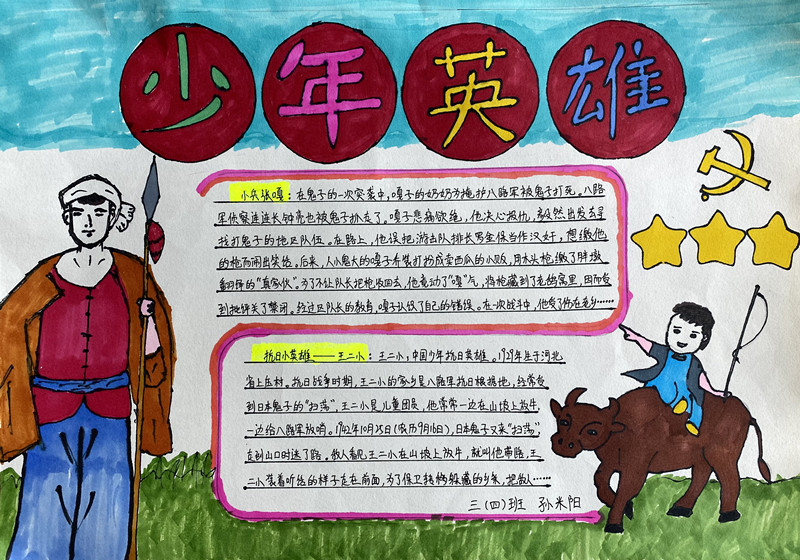 少年英雄
小兵张嘎：在鬼子的一次突袭中，嘎子的奶奶为掩护八路军被鬼子打死。八路
军侦察连连长钟亮也被鬼子抓去了，嘎子悲痛欲绝，他决心报仇，毅然出发去寻
找打鬼子的地区队伍。在路上，他误把游击队排长罗金保当作汉奸，想缴他
的枪而闹出笑话。后来，人小鬼大的嘎子乔装打扮成卖西瓜的小贩，用木头枪缴了胖墩
翻译的“真家伙”。为了不让队长把枪收回去，他竟动了“嘎”气，将枪藏到了老鸹窝里，因而受
到批评关了禁闭。经过区队长的教育，嘎子认识了自己的错误。在一次战斗中，他受了伤在老乡……
抗日小英雄——王二小：王二小，中国少年抗日英雄。1929年生于河北
省上庄村。抗日战争时期，王二小的家乡是八路军抗日根据地，经常受
到日本鬼子的“扫荡”，王二小是儿童团员，他常常一边在山坡上放牛，
一边给八路军放哨。1942年10月25日（农历9月16日），日本鬼子又来“扫荡”
走到山口时迷了路。敌人看见王二小在山坡上放牛，就叫他带路，王
二小装着听话的样子走在前面，为了保卫转移躲藏的乡亲，把敌人……
三（四）班 孙米阳